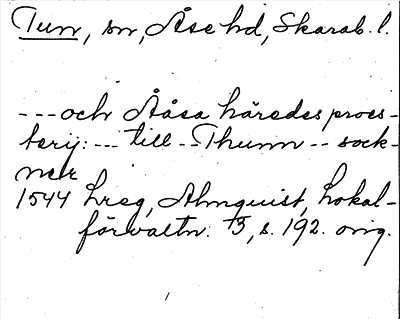 Tun, sn, Åse hd, Skarab. l.
--- ochÅåsa häredes proes-
berij: --- till -- Thunn -- sock-
ner
1544 hreg, Almquist, Lokal-
förvaltn. 3, s. 192. orig.